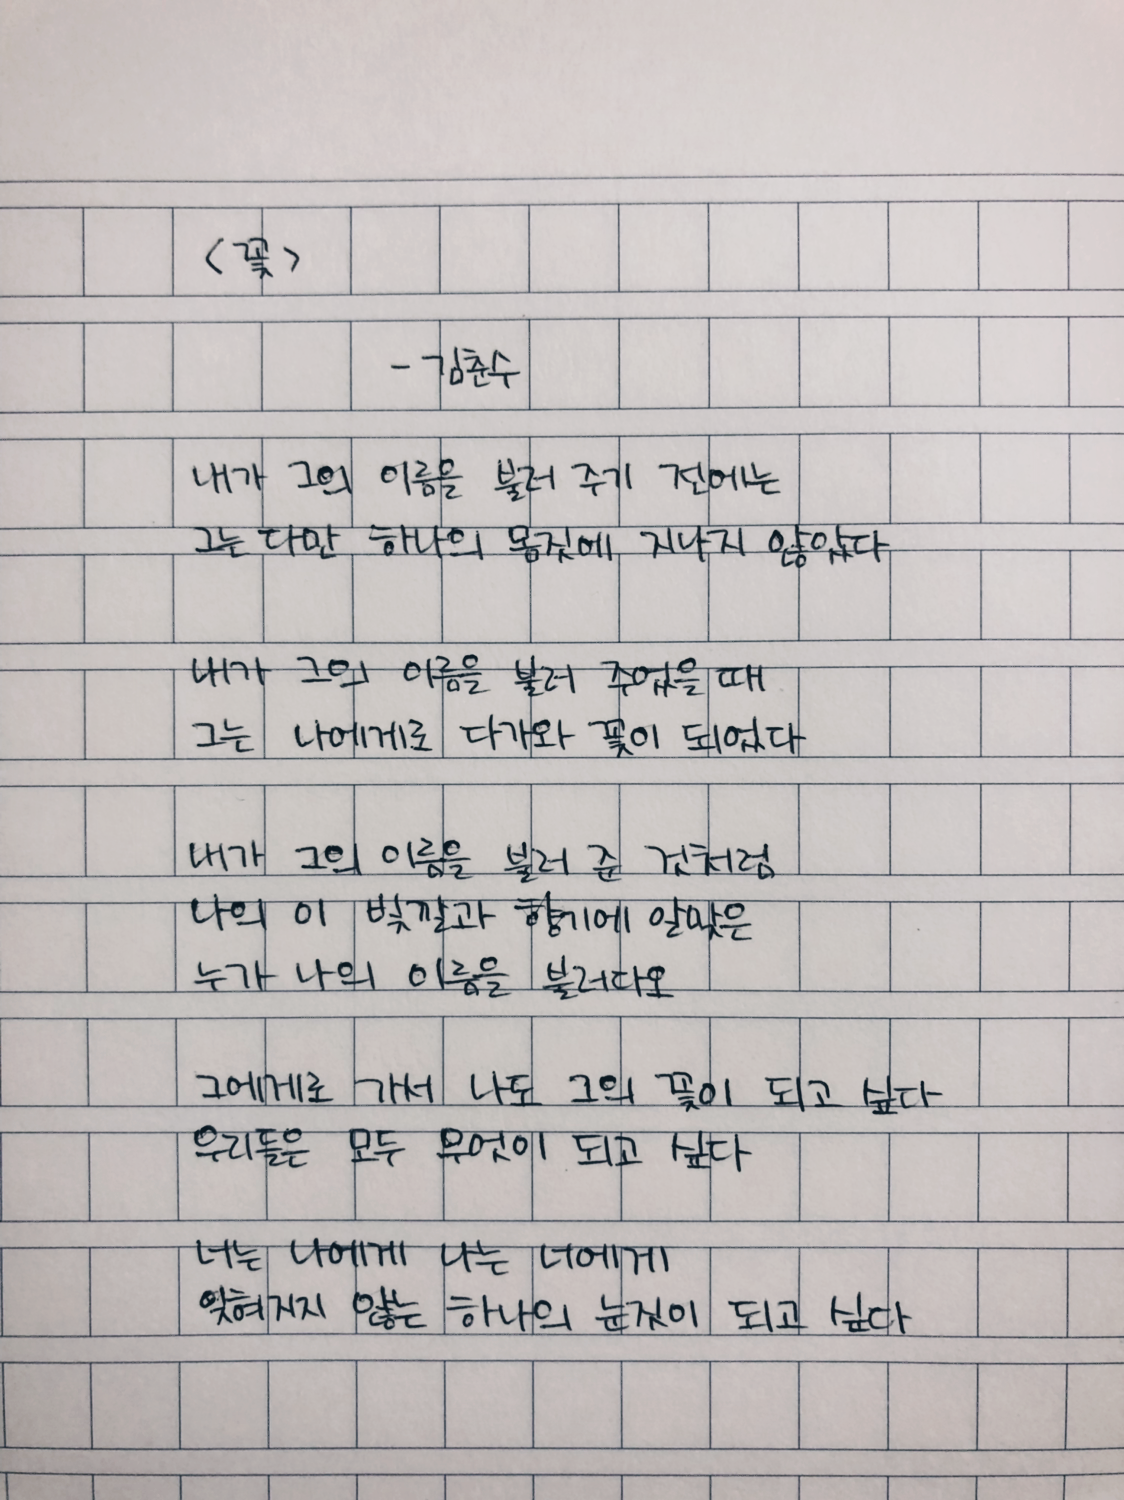 <꽃>
- 김춘수
내가 그의 이름을 불러 주기 전에는
그는 다만 하나의 몸짓에 지나지 않았다
내가 그의 이름을 불러 주었을 때
그는 나에게로 다가와 꽃이 되었다
내가 그의 이름을 불러 준 것처럼
나의 이 빛깔과 향기에 알맞은
누가 나의 이름을 불러다오
그에게로 가서 나도 그의 꽃이 되고 싶다
우리들은 모두 무엇이 되고 싶다
너는 나에게 나는 너에게
잊혀지지 않는 하나의 눈짓이 되고 싶다